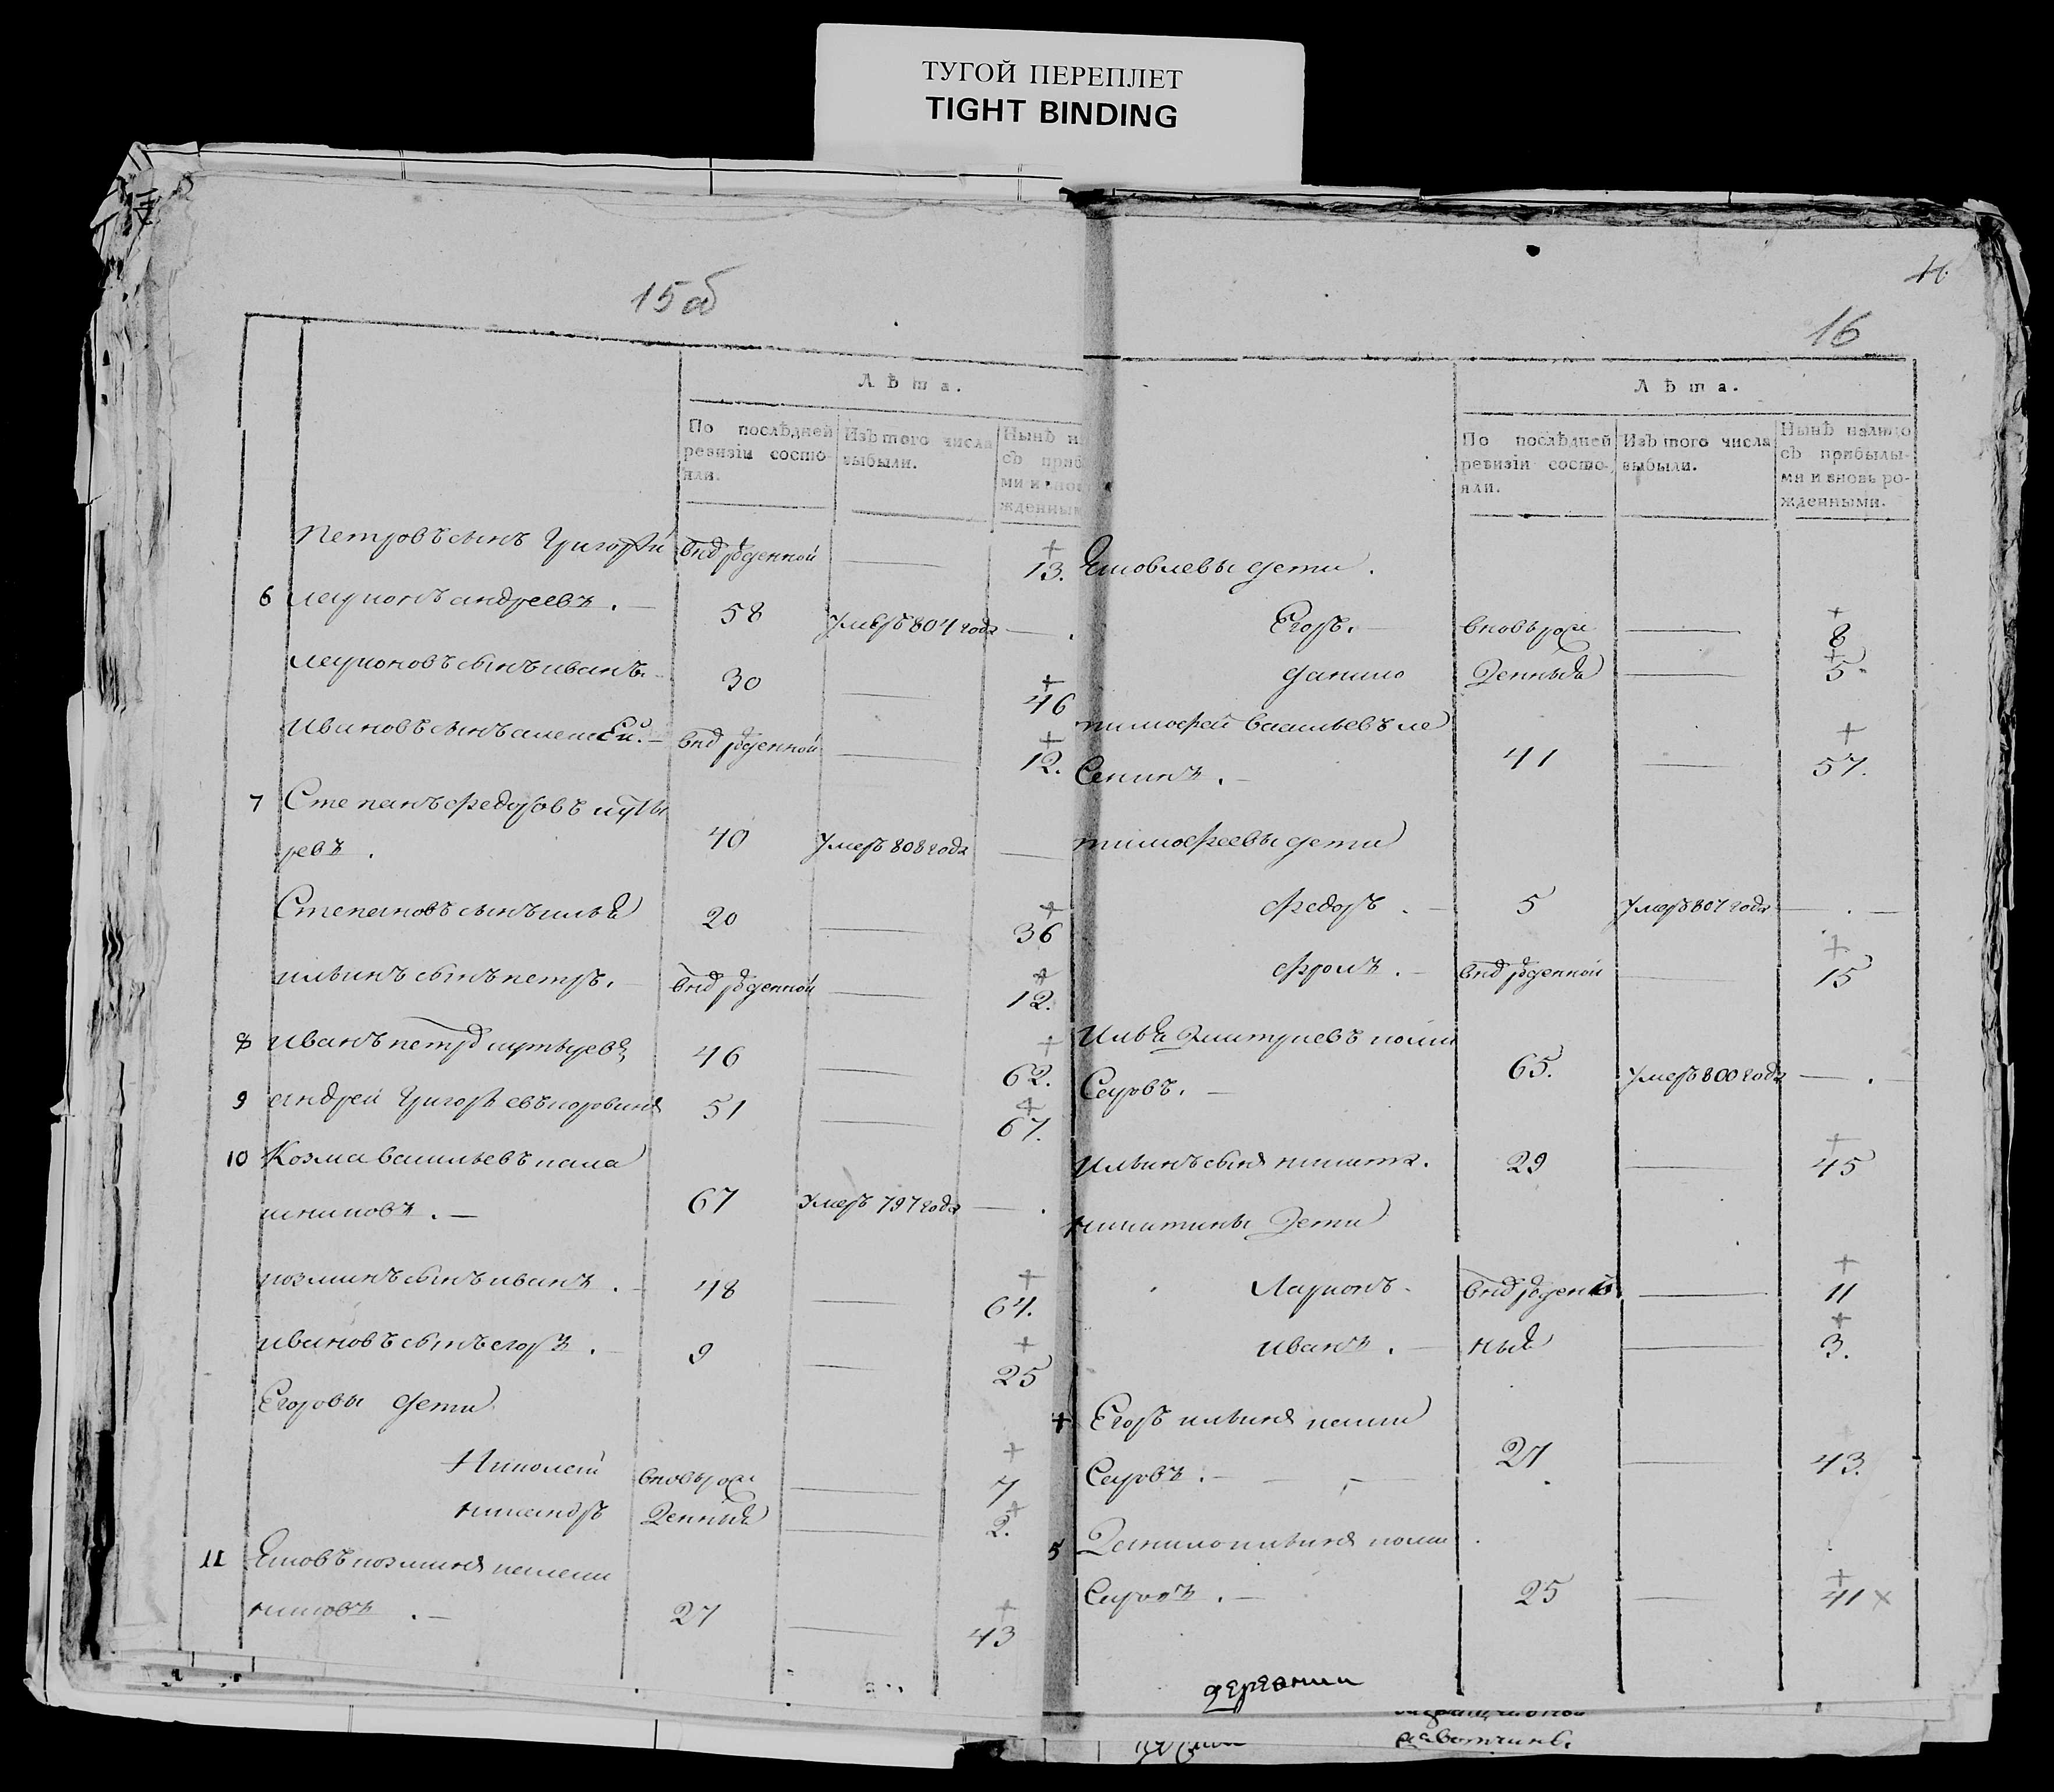 ТУГОЙ ПЕРЕПЛЕТ
TIGHT BINDING
15об
Лѣта.
По послѣдней ревизіи состояли.
Изъ того числа выбыли.
Нынѣ на
съ приб
ми и вно
жденным
Петровъ сынъ Григорей вно рожденной — 13.
6 Ларионъ андреевъ. — 58 умеръ 804 года — .
Ларионовъ сынъ иванъ 30 — 46
Ивановъ сынъ алексѣй. — вно рожденной — 12.
7 Степанъ федоровъ
ревъ. 40 умеръ 808 года —
Степановъ сынъ илья 20 — 36
ильинъ сынъ петръ. вно рожденной — 12.
8 Иванъ петро 46 — 62.
9 андрей Григорьевъ 51 — 67.
10 Козма васильевъ
67 умеръ 797 года — .
козминъ сынъ иванъ. 48 — 64.
ивановъ сынъ егоръ. 9 — 25
Егоровы дети
Николай вновь рож — 7
никандръ денныя — 2.
11 Яковъ козминъ
27 — 43
16
Лѣта.
По послѣдней ревизіи состояли.
Изъ того числа выбыли.
Нынѣ на лицо
съ прибылы-
ми и вновь ро-
жденными.
Яковлевы дети.
Егоръ. вновь рож — 8
данило денныя — 5.
тимофей васильевъ ле
Сенинъ. — 41 — 57.
тимофеевы дети
федоръ. — 5 умеръ 807 года — . —
фролъ. — вно рожденной — 15
Илья Дмитриевъ
65. умеръ 800 года — .
Ильинъ сынъ никита. 29 — 45
никитины дети
Ларионъ. вно рожден — 11
иванъ. — ныя — 3.
4 Егоръ ильинъ
27 — 43.
5 Данило ильинъ
25 — 41 x
деревни